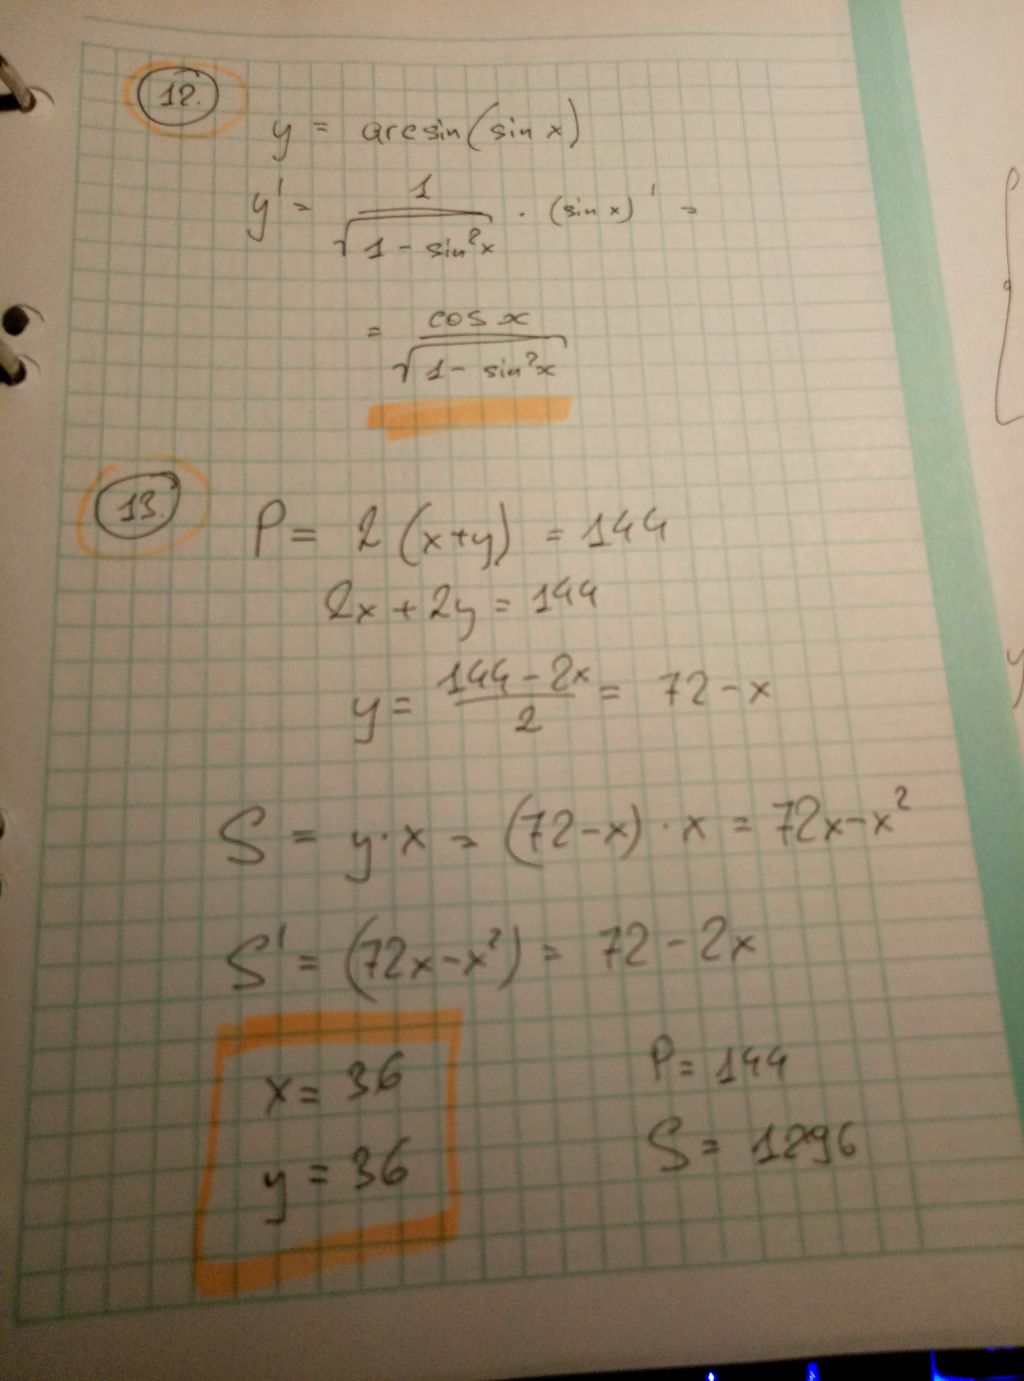 12.
y = arcsin(sin x)
y' = 1/√(1 - sin²x) · (sin x)' =
= cos x/√(1 - sin²x)
13.
P = 2 (x+y) = 144
2x + 2y = 144
y = (144 - 2x)/2 = 72 - x
S = y · x = (72 - x) · x = 72x - x²
S' = (72x - x²) = 72 - 2x
x = 36 P = 144
y = 36 S = 1296